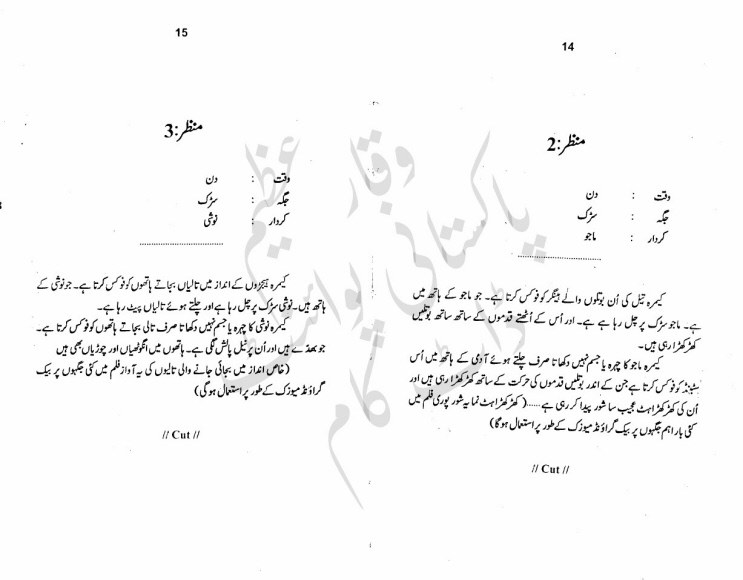 14
منظر:2
وقت : دن
جگہ : سڑک
کردار : ماجو
..............................
کیمرہ تیل کی اُن بوتلوں والے ہینگر کو فوکس کرتا ہے۔ جو ماجو کے ہاتھ میں
ہے۔ ماجو سڑک پر چل رہا ہے ہے۔ اور اُس کے اُٹھتے قدموں کے ساتھ ساتھ بوتلیں
کھڑکھڑا رہی ہیں۔
کیمرہ ماجو کا چہرہ یا جسم نہیں دکھاتا صرف چلتے ہوئے آدمی کے ہاتھ میں اُس
سٹینڈ کو فوکس کرتا ہے جن کے اندر بوتلیں قدموں کی حرکت کے ساتھ کھڑکھڑا رہی ہیں اور
اُن کی کھڑکھڑاہٹ عجیب سا شور پیدا کر رہی ہے......( کھڑکھڑاہٹ نما یہ شور پوری فلم میں
کئی بار اہم جگہوں پر بیک گراؤنڈ میوزک کے طور پر استعمال ہوگا)
// Cut //
15
منظر:3
وقت : دن
جگہ : سڑک
کردار : نوشی
..............................
کیمرہ ہیجڑوں کے انداز میں تالیاں بجاتے ہاتھوں کو فوکس کرتا ہے۔ جو نوشی کے
ہاتھ ہیں۔ نوشی سڑک پر چل رہا ہے اور چلتے ہوئے تالیاں پیٹ رہا ہے۔
کیمرہ نوشی کا چہرہ یا جسم نہیں دکھاتا صرف تالی بجاتے ہاتھوں کو فوکس کرتا ہے۔
جو بھدے ہیں اور اُن پر نیل پالش لگی ہے۔ ہاتھوں میں انگوٹھیاں اور چوڑیاں بھی ہیں
(خاص انداز میں بجائی جانے والی تالیوں کی یہ آواز فلم میں کئی جگہوں پر بیک
گراؤنڈ میوزک کے طور پر استعمال ہوگی)
// Cut //
وقار عظیم
پاکستانی پوائنٹ
ڈاٹ کام